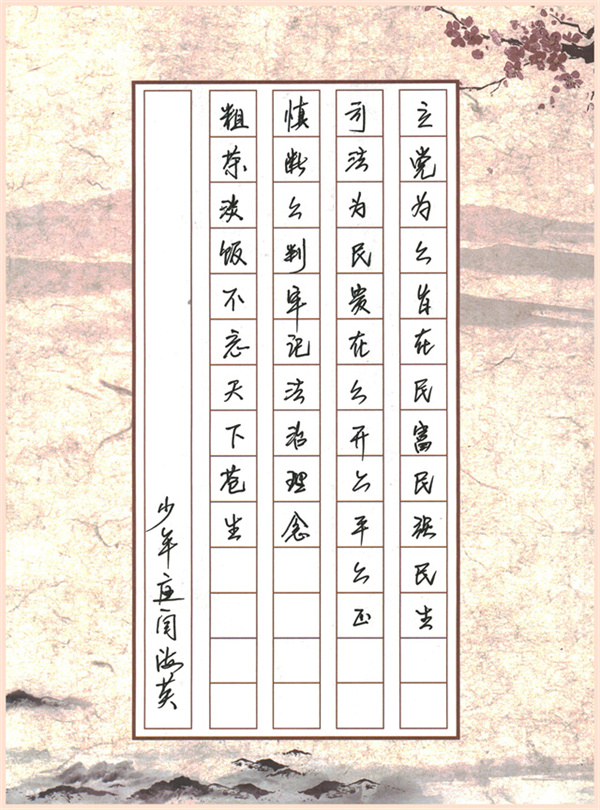 立党为公旨在民富民强民生
司法为民贵在公开公平公正
慎断公判牢记法治理念
粗茶淡饭不忘天下苍生
少年庭闫海英